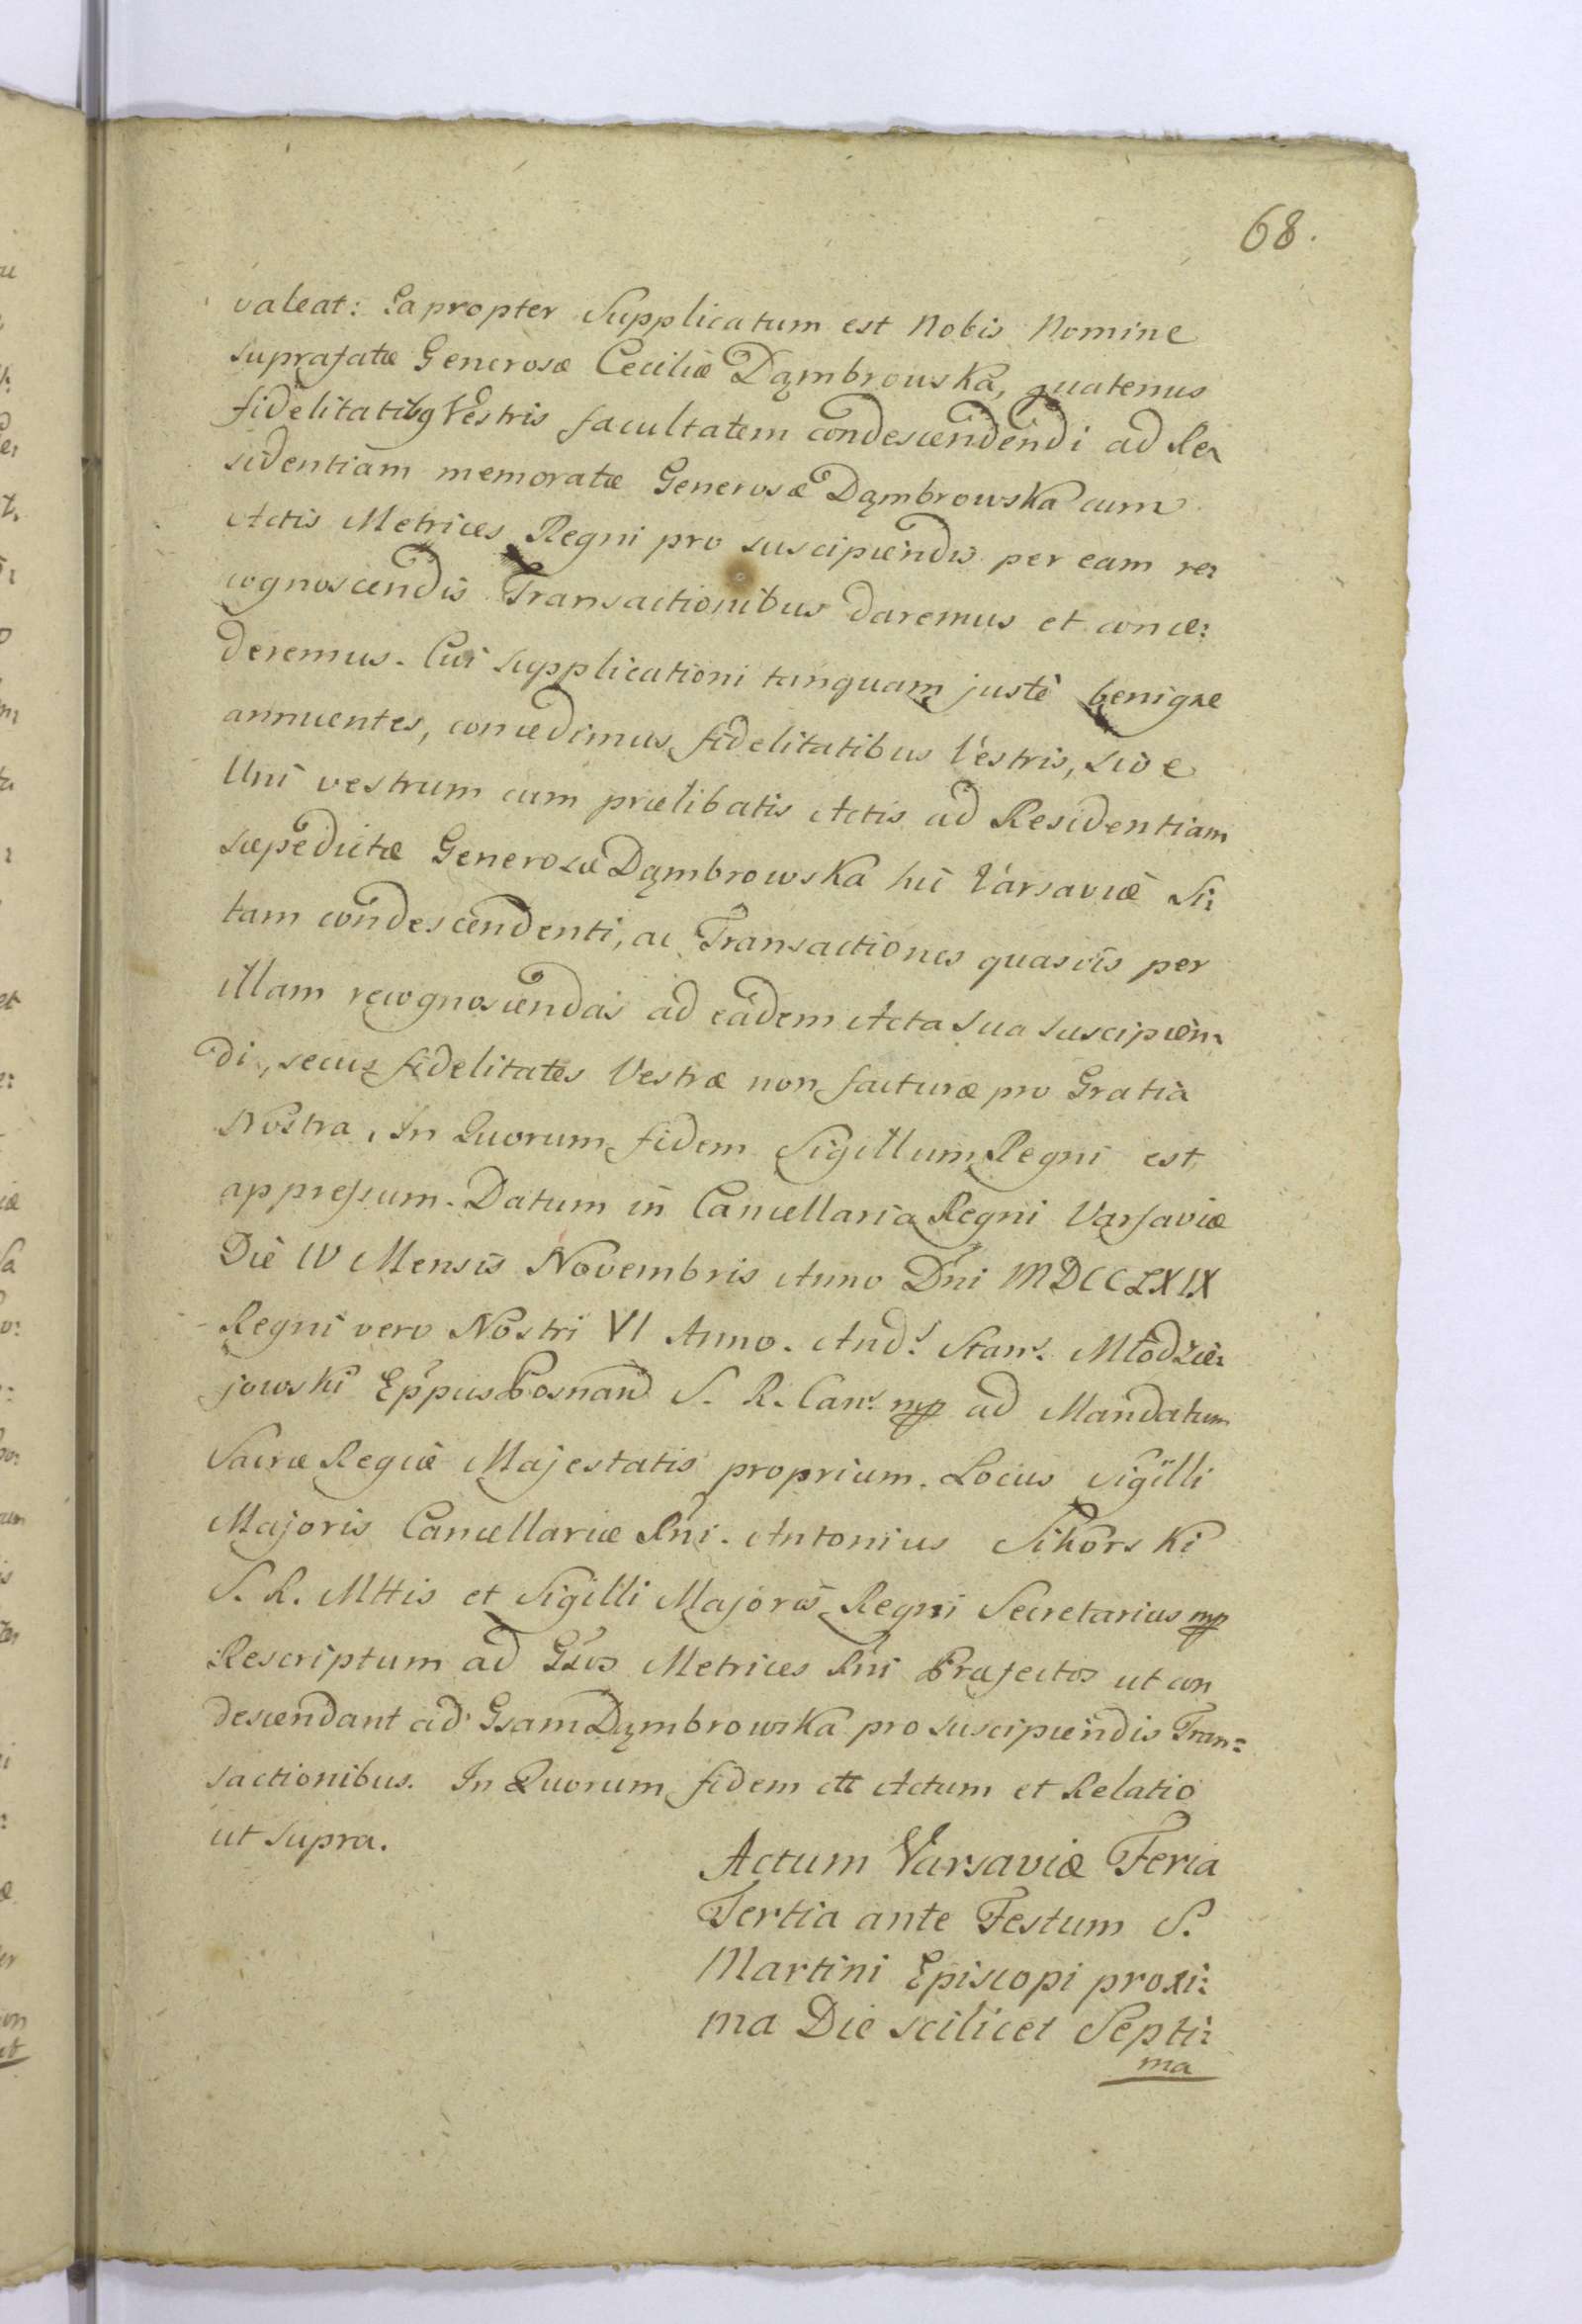 68.
valeat: Eapropter Supplicatum est Nobis Nomine
suprafatæ Generosæ Ceciliæ Dąmbrowska, quatenus
fidelitatibq Vestris facultatem condescendendi ad Re:
sidentiam memoratæ Generosæ Dąmbrowska cum
Actis Metrices Regni pro suscipiendis per eam re:
cognoscendis Transactionibus daremus et conce:
deremus. Cui supplicationi tanquam justè benigne
annuentes, concedimus fidelitatibus Vestris, sive
Uni vestrum cum prælibatis Actis ad Residentiam
sæpedictæ Generosæ Dąmbrowska hic Varsaviæ Si:
tam condescendenti, ac Transactiones quasvis per
illam recognoscendas ad eadem Acta sua suscipien:
di, secus fidelitates Vestræ non facturæ pro Gratia
Nostra. In Quorum fidem Sigillum Regni est
appressum. Datum in Cancellaria Regni Varsaviæ
Die IV Mensis Novembris Anno Dni MDCCLXIX
Regni vero Nostri VI Anno. Andˢ Stanˢ. Młodzie:
jowski Eppus Posnan S. R. Canˢ mp ad Mandatum
Sacræ Regiæ Majestatis proprium. Locus Sigilli
Majoris Cancellariæ Rni. Antonius Sikorski
S. R. Mttis et Sigilli Majoris Regni Secretarius mp
Rescriptum ad Gsos Metrices Rni Præfectos ut con
descendant ad Gsam Dąmbrowska pro suscipiendis Tran=
sactionibus. In Quorum fidem ett Actum et Relatio
ut supra.
Actum Varsaviæ Feria
Tertia ante Festum S.
Martini Episcopi proxi:
ma Die scilicet Septi:
ma